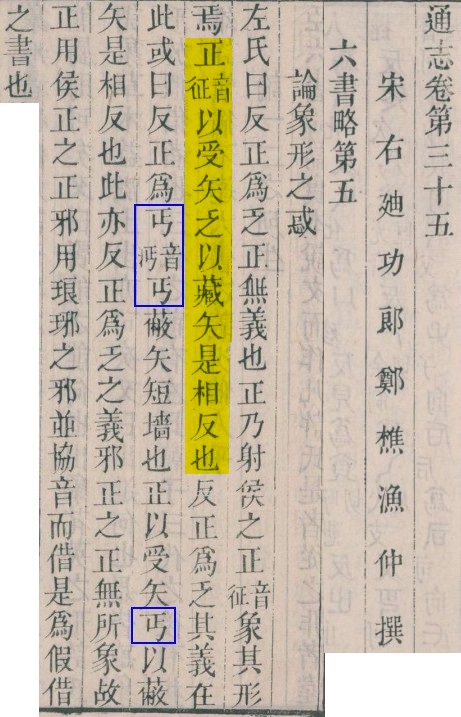 通志卷第三十五
宋右廸功郎鄭樵漁仲撰
六書略第五
論象形之惑
左氏曰反正爲乏正無義也正乃射侯之正音征象其形
焉正音征以受矢乏以藏矢是相反也反正爲乏其義在
此或曰反正爲丏音沔丏蔽矢短墻也正以受矢丏以蔽
矢是相反也此亦反正爲乏之義邪正之正無所象故
正用侯正之正邪用琅琊之邪並協音而借是爲假借
之書也